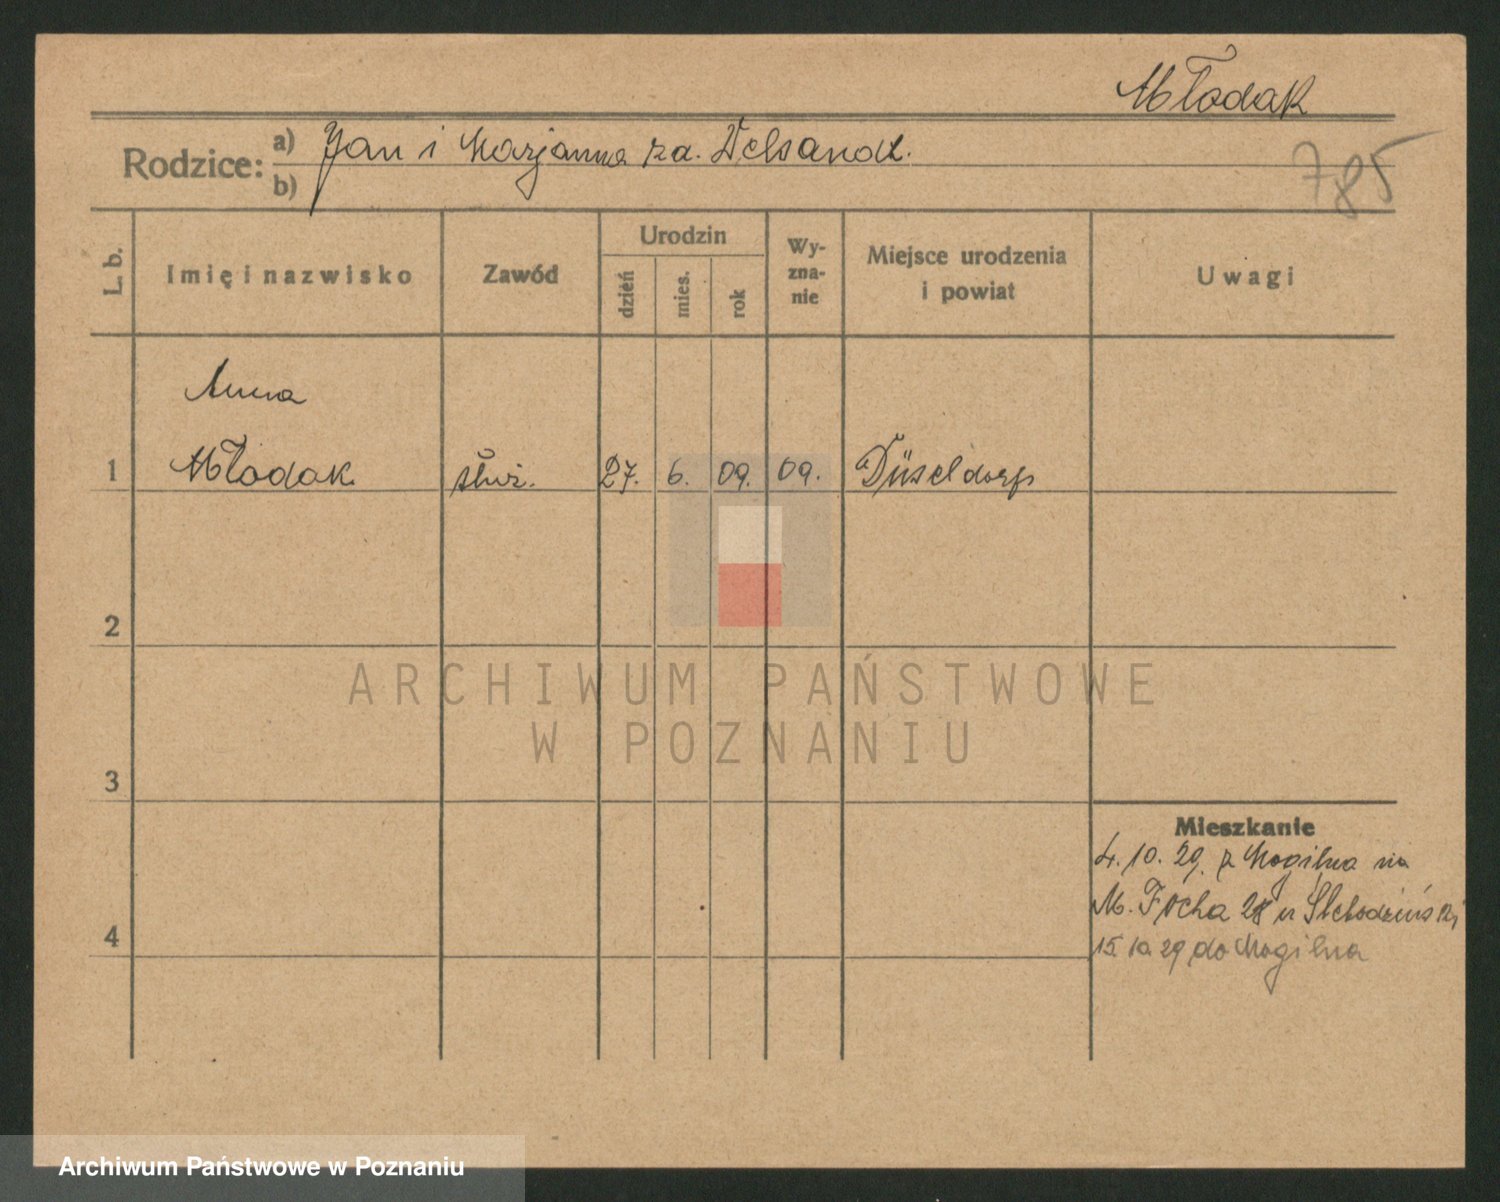 Młodak
Rodzice: a) Jan i Marjanna za.
b)
785
L. b.
Imię i nazwisko
Zawód
Urodzin
dzień
mies.
rok
Wy-
zna-
nie
Miejsce urodzenia
i powiat
Uwagi
Anna
1 Młodak służ. 27. 6. 09. 09. Düseldorf
2
ARCHIWUM PAŃSTWOWE
W POZNANIU
3
Mieszkanie
4. 10. 29. z Mogilna na
M. Focha 28 u
4
15 10 29 do Mogilna
Archiwum Państwowe w Poznaniu